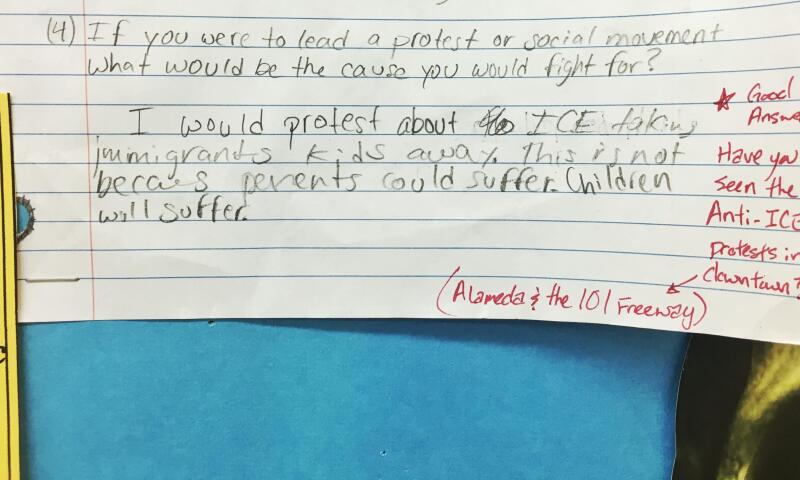 (4) If you were to lead a protest or social movement
what would be the cause you would fight for?
I would protest about ICE taking
immigrants kids away. This is not
becaes perents could suffer. Children
will suffer.
★ Good
Answe
Have you
seen the
Anti-ICE
protests in
downtown?
(Alameda & the 101 Freeway)